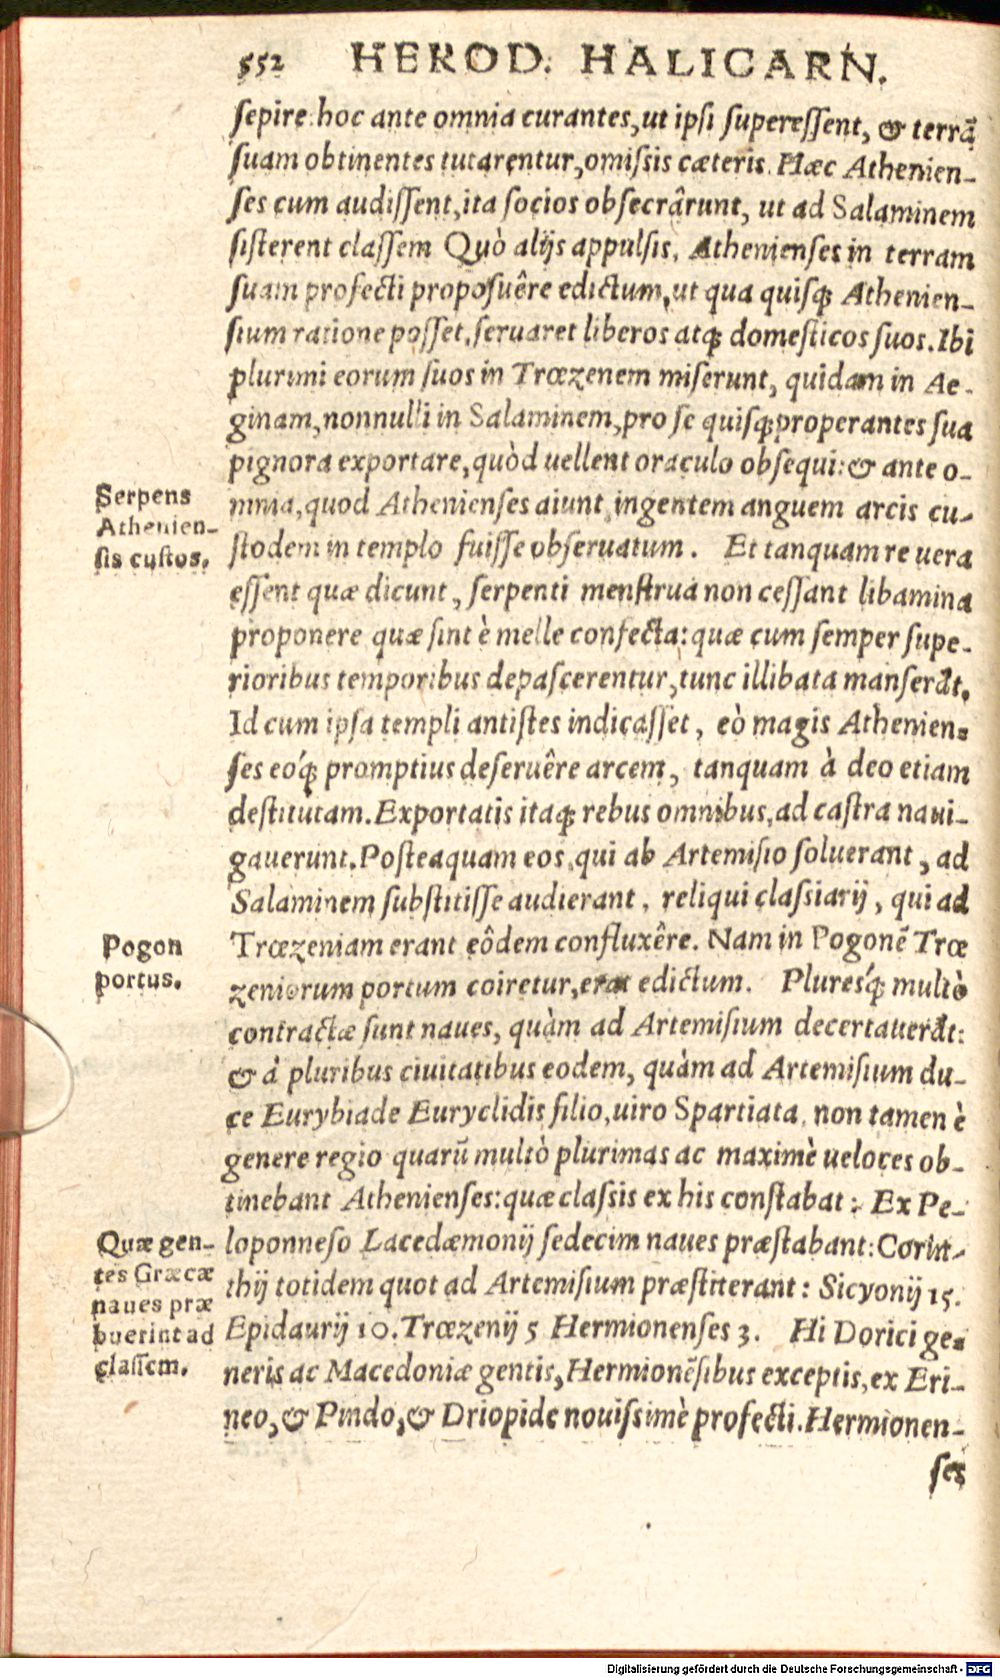 552 HEROD. HALICARN.
sepire: hoc ante omnia curantes, ut ipsi superessent, & terrā
suam obtinentes tutarentur, omissis cæteris. Hæc Athenien-
ses cum audissent, ita socios obsecrârunt, ut ad Salaminem
sisterent classem Quò alijs appulsis, Athenienses in terram
suam profecti proposuêre edictum, ut qua quisq; Athenien-
sium ratione posset, seruaret liberos atq; domesticos suos. Ibi
plurimi eorum suos in Trœzenem miserunt, quidam in Ae-
ginam, nonnulli in Salaminem, pro se quisq; properantes sua
pignora exportare, quòd uellent oraculo obsequi: & ante o-
mnia, quod Athenienses aiunt ingentem anguem arcis cu-
Serpens
Athenien-
sis custos.
stodem in templo fuisse obseruatum. Et tanquam re uera
essent quæ dicunt, serpenti menstrua non cessant libamina
proponere quæ sint è melle confecta: quæ cum semper supe-
rioribus temporibus depascerentur, tunc illibata manserāt.
Id cum ipsa templi antistes indicasset, eò magis Athenien-
ses eóq; promptius deseruêre arcem, tanquam à deo etiam
destitutam. Exportatis itaq; rebus omnibus, ad castra naui-
gauerunt. Posteaquam eos, qui ab Artemisio soluerant, ad
Salaminem substitisse audierant, reliqui classiarij, qui ad
Trœzeniam erant eôdem confluxêre. Nam in Pogonē Trœ
Pogon
portus.
zeniorum portum coiretur, erat edictum. Pluresq́; multò
contractæ sunt naues, quàm ad Artemisium decertauerāt:
& à pluribus ciuitatibus eodem, quàm ad Artemisium du-
ce Eurybiade Euryclidis filio, uiro Spartiata, non tamen è
genere regio quarū multò plurimas ac maximè ueloces ob-
tinebant Athenienses: quæ classis ex his constabat: Ex Pe-
loponneso Lacedæmonij sedecim naues præstabant: Corin-
Quæ gen-
tes Græcæ
naues præ
buerint ad
classem.
thij totidem quot ad Artemisium præstiterant: Sicyonij 15.
Epidaurij 10. Trœzenij 5 Hermionenses 3. Hi Dorici ge-
neris ac Macedoniæ gentis, Hermionēsibus exceptis, ex Eri-
neo, & Pindo, & Driopide nouissimè profecti. Hermionen-
ses
Digitalisierung gefördert durch die Deutsche Forschungsgemeinschaft - DFG